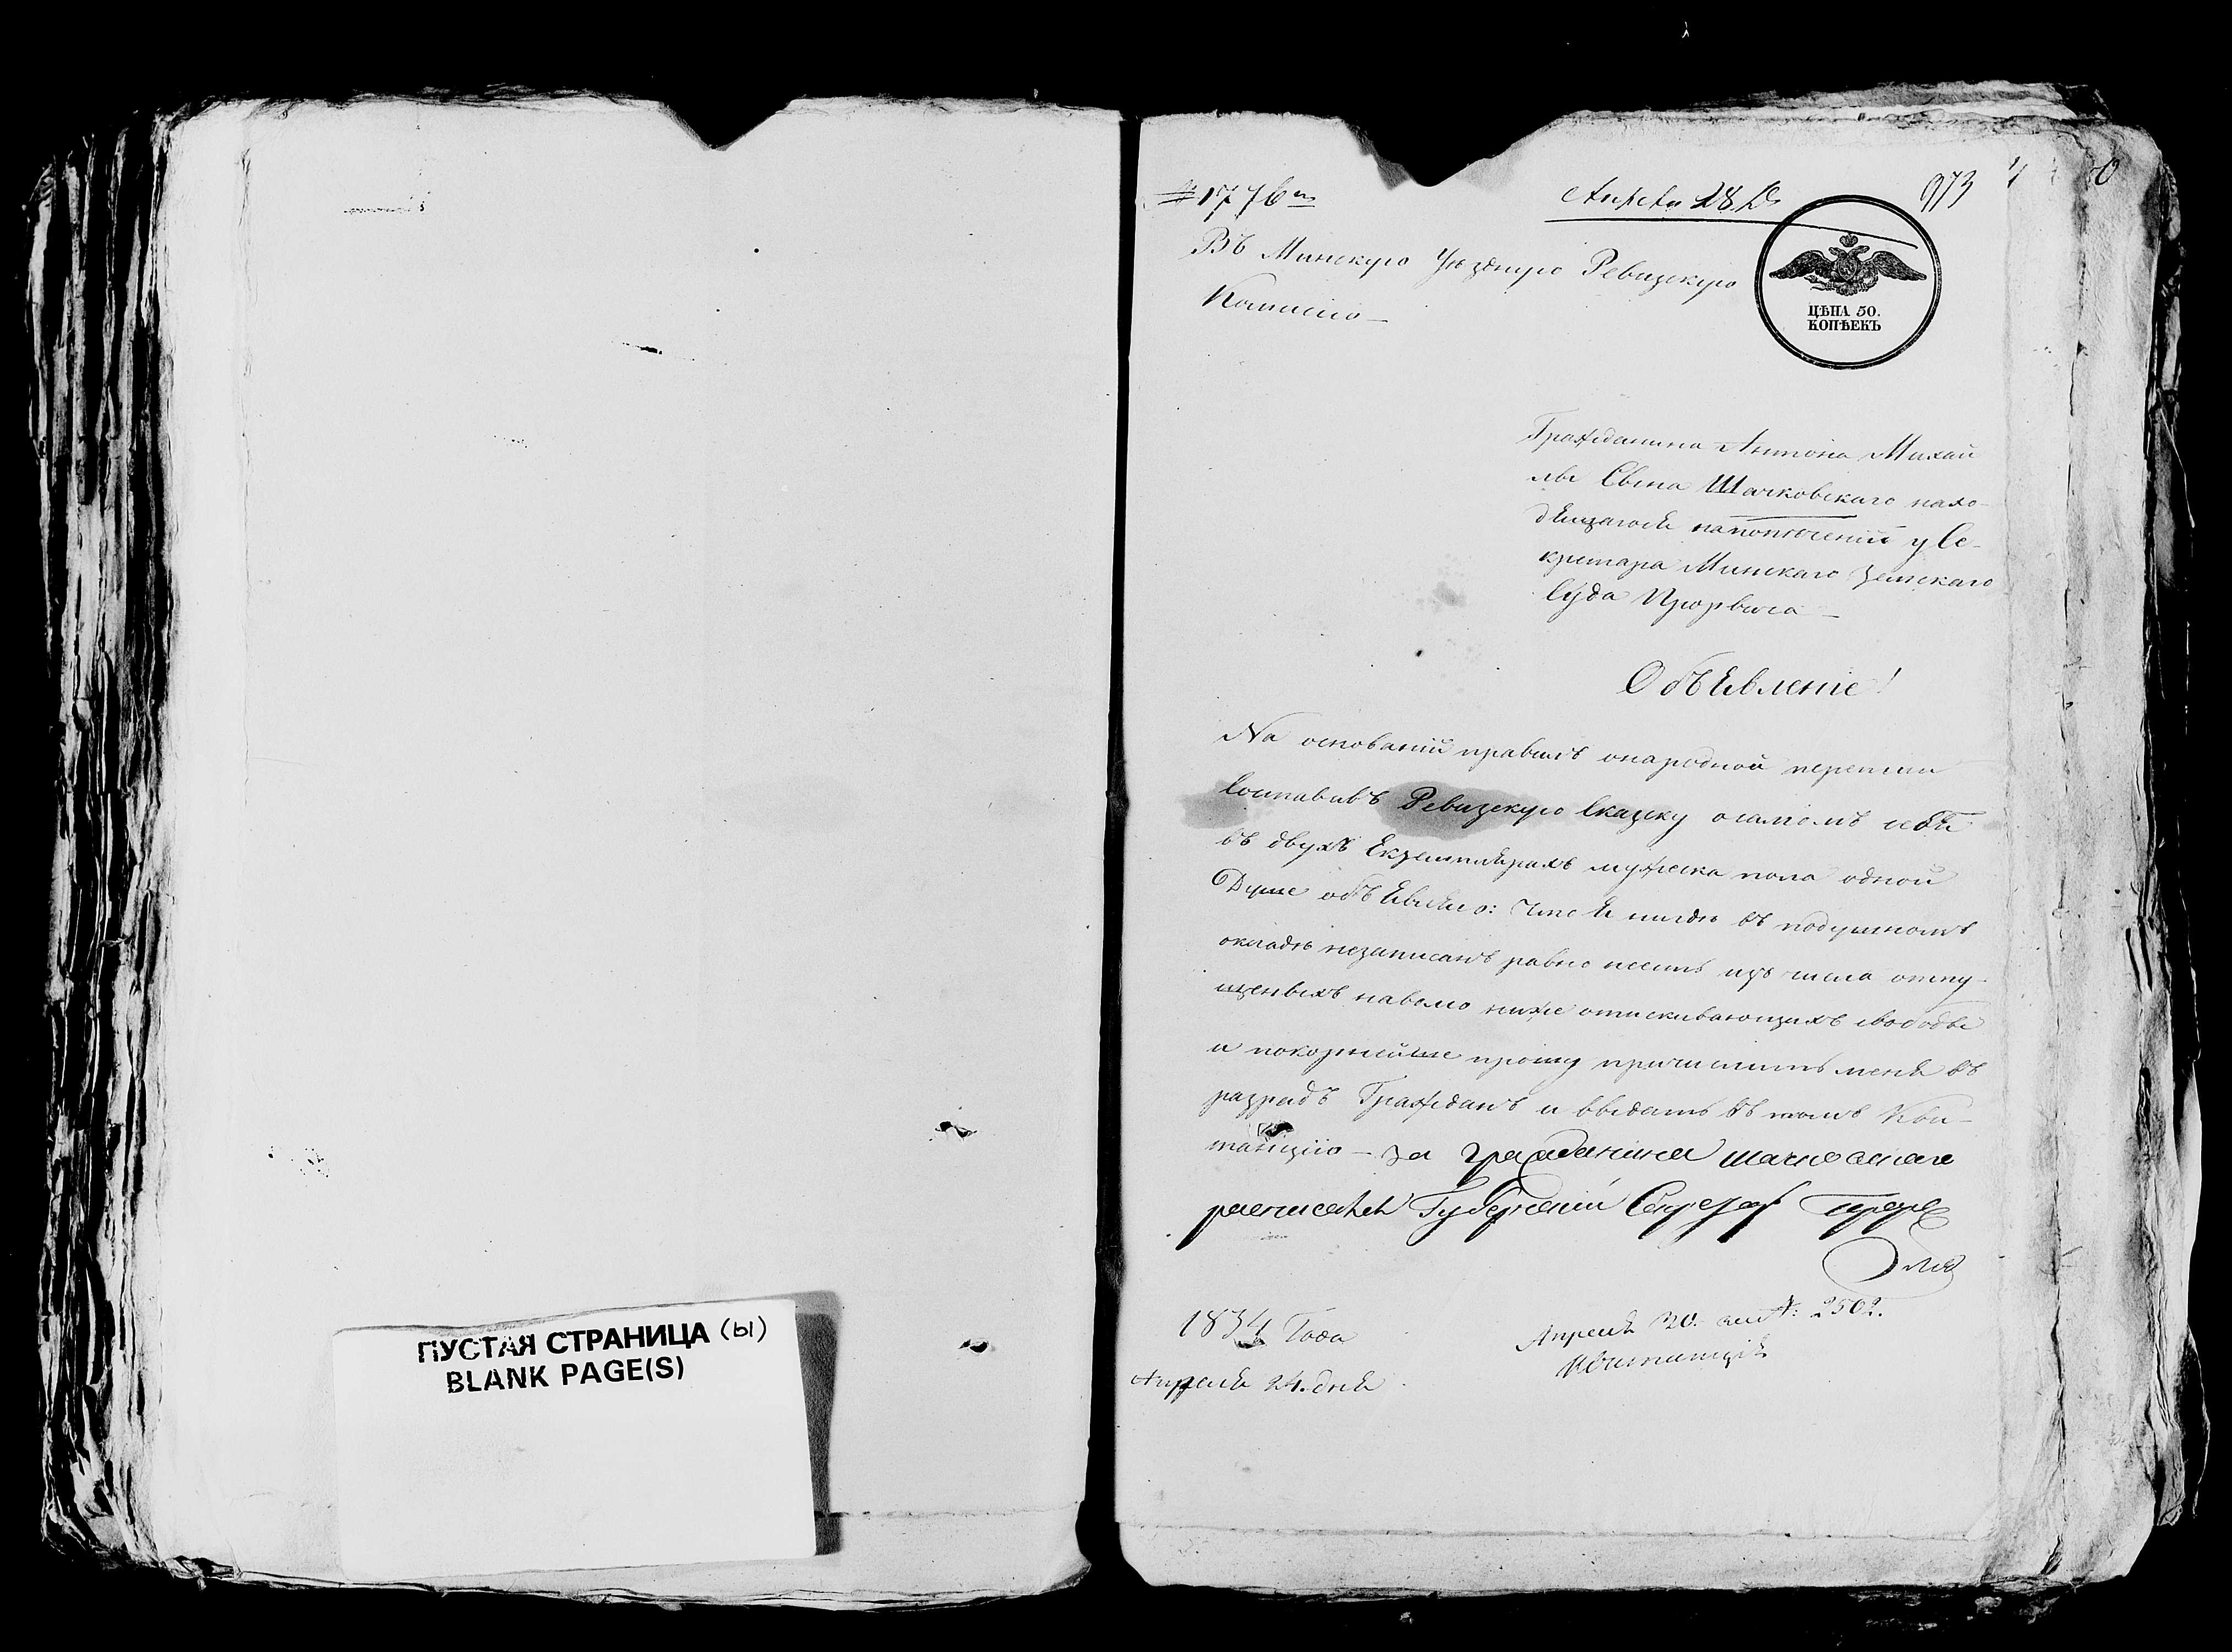 № 1776
Апреля 28 Дня
973
Въ Минскую Уѣздную Ревизскую
Комисію
ЦѢНА 50.
КОПѢЕКЪ
Гражданина Антона Михай
лы Сына Шачковскаго нахо-
дящагося на попечении у Се-
кретара Минскаго Земскаго
Суда
Объявленіе!
На основаніи правилъ о народной переписи
Составивъ Ревизскую Сказку о самомъ себѣ
въ двухъ Екземплярахъ мужеска пола одной
Души объявляю: Что я нигдѣ въ подушномъ
окладѣ незаписанъ равно неесть изъ числа отпу-
щенныхъ наволю ниже отыскивающихъ свободы
и покорнейше прошу причислить меня въ
разрядъ Гражданъ и выдать въ томъ Кви-
танцію – За гражданина Шачковскаго
росписался Губернскій Секретарь
1834 Года
Апреля 24. дня
Апреля 30. №: 2502.
Квитанція
ПУСТАЯ СТРАНИЦА (ы)
BLANK PAGE(S)